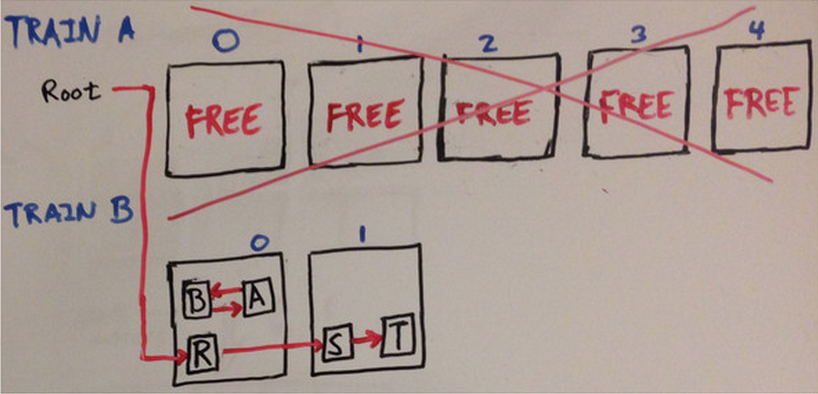 TRAIN A
0 1 2 3 4
Root
FREE FREE FREE FREE FREE
TRAIN B
0 1
B A
R S T